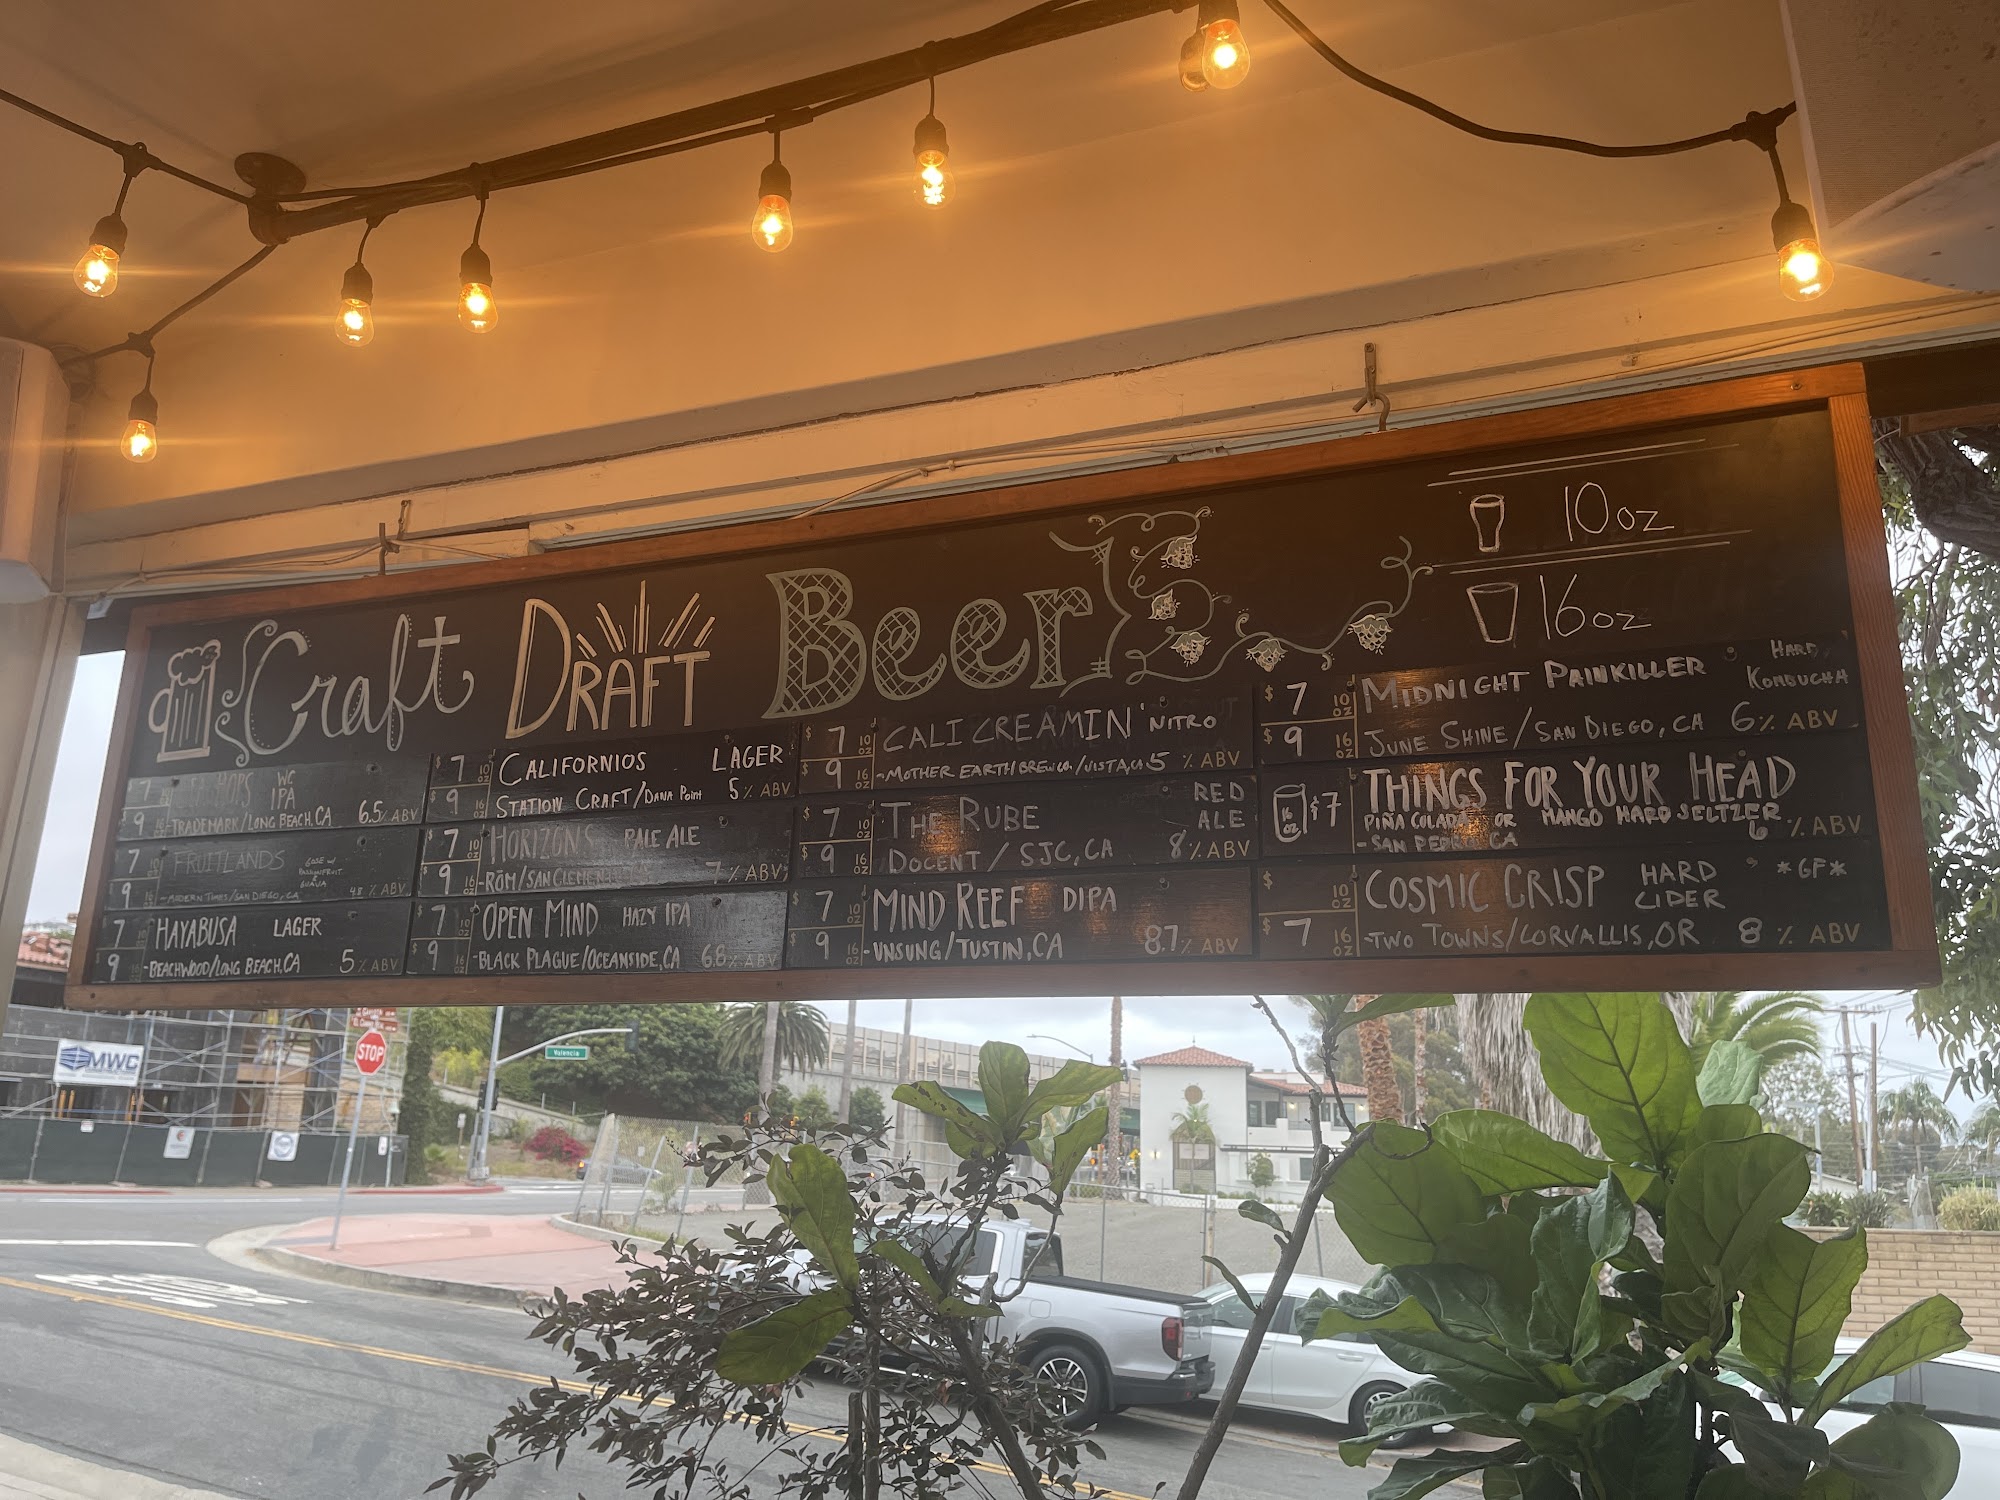 Craft DRAFT Beer
10oz
16oz
$ 7 10 oz
$ 9 16 oz
HOPS WC IPA
-TRADEMARK/LONG BEACH, CA 6.5% ABV
7 10 oz
9 16 oz
FRUITLANDS GOSE w/ PASSIONFRUIT & GUAVA
-MODERN TIMES/SAN DIEGO, CA 4.8 % ABV
7 10 oz
9 16 oz
HAYABUSA LAGER
-BEACHWOOD/LONG BEACH, CA 5% ABV
$ 7 10 oz
$ 9 16 oz
CALIFORNIOS LAGER
STATION CRAFT/DANA POINT 5% ABV
$ 7 10 oz
$ 9 16 oz
HORIZONS PALE ALE
-RÖM/SAN CLEMENTE, CA 7% ABV
$ 7 10 oz
$ 9 16 oz
OPEN MIND HAZY IPA
-BLACK PLAGUE/OCEANSIDE, CA 6.8% ABV
$ 7 10 oz
$ 9 16 oz
CALI CREAMIN' NITRO
-MOTHER EARTH BREW CO./VISTA, CA 5 % ABV
$ 7 10 oz
$ 9 16 oz
THE RUBE RED ALE
DOCENT / SJC, CA 8% ABV
$ 7 10 oz
$ 9 16 oz
MIND REEF DIPA
-UNSUNG/TUSTIN, CA 8.7% ABV
$ 7 10 oz
$ 9 16 oz
MIDNIGHT PAINKILLER HARD KOMBUCHA
JUNE SHINE/SAN DIEGO, CA 6% ABV
16 oz $7
THINGS FOR YOUR HEAD
PIÑA COLADA OR MANGO HARD SELTZER
-SAN PEDRO, CA 6 % ABV
$ 10 oz
$ 7 16 oz
COSMIC CRISP HARD CIDER *GF*
-TWO TOWNS/CORVALLIS, OR 8 % ABV
MWC
STOP
Valencia